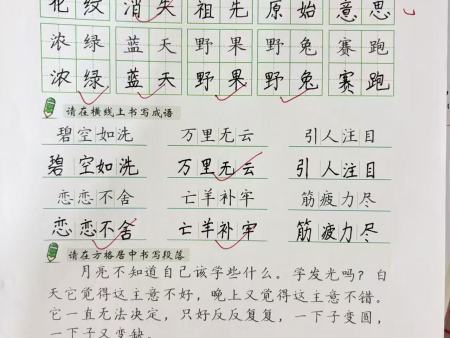 花纹 消失 祖先 原始 意思
浓绿 蓝天 野果 野兔 赛跑
浓绿 蓝天 野果 野兔 赛跑
请在横线上书写成语
碧空如洗 万里无云 引人注目
碧空如洗 万里无云 引人注目
恋恋不舍 亡羊补牢 筋疲力尽
恋恋不舍 亡羊补牢 筋疲力尽
请在方格居中书写段落
月亮不知道自己该学些什么。学发光吗？白
天它觉得这主意不好，晚上又觉得这主意不错。
它一直无法决定，只好反反复复，一下子变圆，
一下子又变缺。